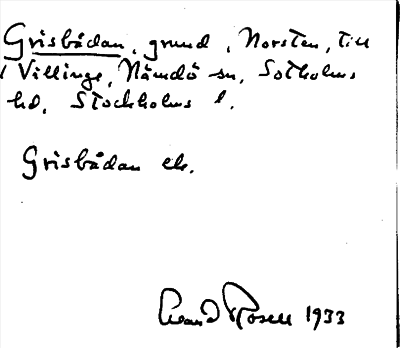 Grisbådan, grund, Norsten, till
Villinge, Nämdö sn, Sotholms
hd, Stockholms l.
Grisbådan ek.
Rosell 1933